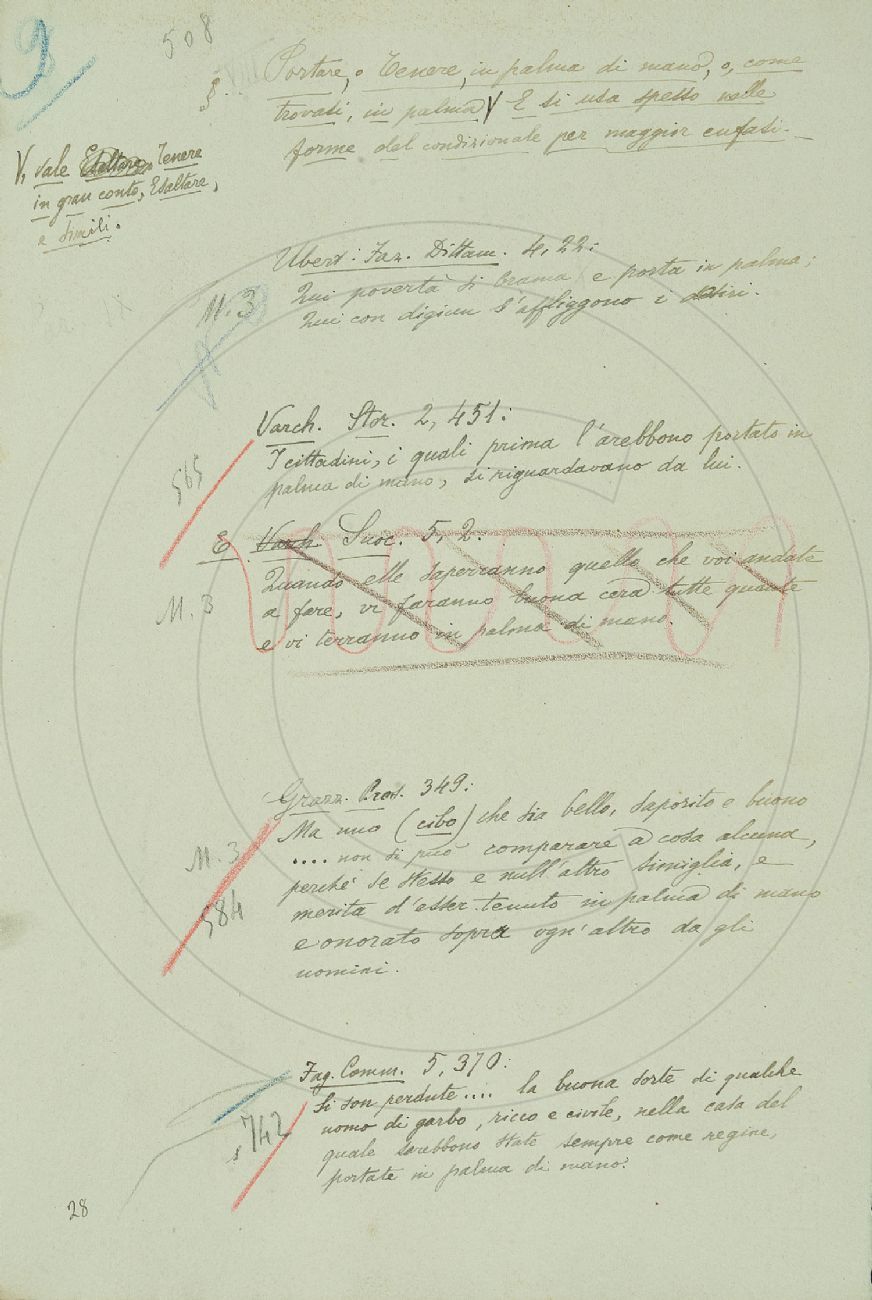 9
508
§. VIII Portare, o Tenere, in palma di mano, o, come
trovasi, in palma V E si usa spesso nelle
forme del condizionale per maggior enfasi.
V, vale Esaltare, Tenere
in gran conto, Esaltare,
e simili.
Ubert. Faz. Dittam. 4, 22:
M. 3
Qui povertà si brama e porta in palma;
Qui con digiun s'affliggono i disiri.
Varch. Stor. 2, 451:
I cittadini, i quali prima l'arebbono portato in
565
palma di mano, si riguardavano da lui.
E Varch Suoc. 5, 2:
Quando elle saperranno quello che voi andate
M. 3
a fare, vi faranno buona cera tutte quante
e vi terranno in palma di mano.
Grazz. Pros. 349:
Ma uno (cibo) che sia bello, saporito e buono
M. 3
.... non si può comparare a cosa alcuna,
perché se stesso e null'altro simiglia, e
584
merita d'esser tenuto in palma di mano
e onorato sopra ogn'altro da gli
uomini.
Fag. Comm. 5, 370:
Si son perdute.... la buona sorte di qualche
742
uomo di garbo, ricco e civile, nella casa del
quale sarebbono state sempre come regine,
portate in palma di mano.
28